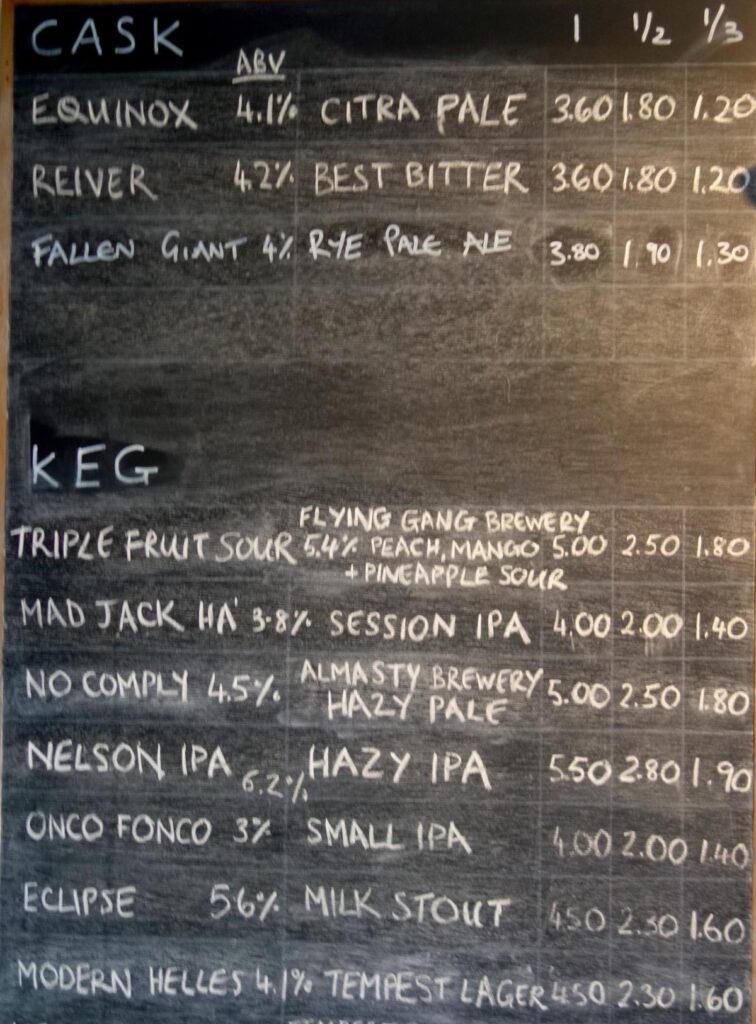 CASK 1 1/2 1/3
ABV
EQUINOX 4.1% CITRA PALE 3.60 1.80 1.20
REIVER 4.2% BEST BITTER 3.60 1.80 1.20
FALLEN GIANT 4% RYE PALE ALE 3.80 1.90 1.30
KEG
FLYING GANG BREWERY
TRIPLE FRUIT SOUR 5.4% PEACH, MANGO 5.00 2.50 1.80
+ PINEAPPLE SOUR
MAD JACK HA' 3.8% SESSION IPA 4.00 2.00 1.40
ALMASTY BREWERY
NO COMPLY 4.5% HAZY PALE 5.00 2.50 1.80
NELSON IPA 6.2% HAZY IPA 5.50 2.80 1.90
ONCO FONCO 3% SMALL IPA 4.00 2.00 1.40
ECLIPSE 5.6% MILK STOUT 4.50 2.30 1.60
MODERN HELLES 4.1% TEMPEST LAGER 4.50 2.30 1.60